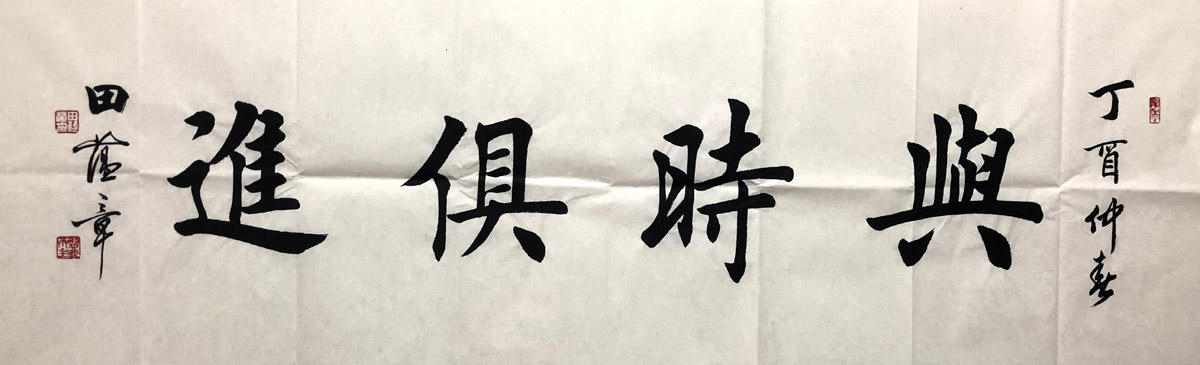 丁酉仲春
與時俱進
田蘊章